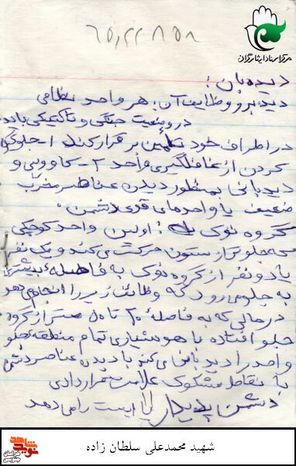 مرکز اسناد ایثارگران
دیده بان:
دیدبور و وظایف آن: هر واحد نظامی
در وضعیت جنگی و تاکتیکی باید
در اطراف خود تأمین بر قرار کند ۱- جلوگیری
کردن از غافلگیری واحد ۲-
دیدبانی بمنظور دیدن عناصر مخرب
ضعیف یا واحدهای قوی دشمن.
گروه نوک: اولین واحد کوچکی
که جلوتر از ستون حرکت می کند و یک نفر
یا دو نفر از گروه نوک به فاصله بیشتری
به جلو می رود که وظایف زیر را انجام می دهد
در حالی که به فاصله ۲۰ تا متر از گروه
جلو افتاده با هوشیاری تمام منطقه جلو
واحد را دیدبانی می کند با دیدن عناصر دشمن
یا نقاط مشکوک علامت قراردادی
دشمن پدیدار یا ایست را می دهد
شهید محمدعلی سلطان زاده